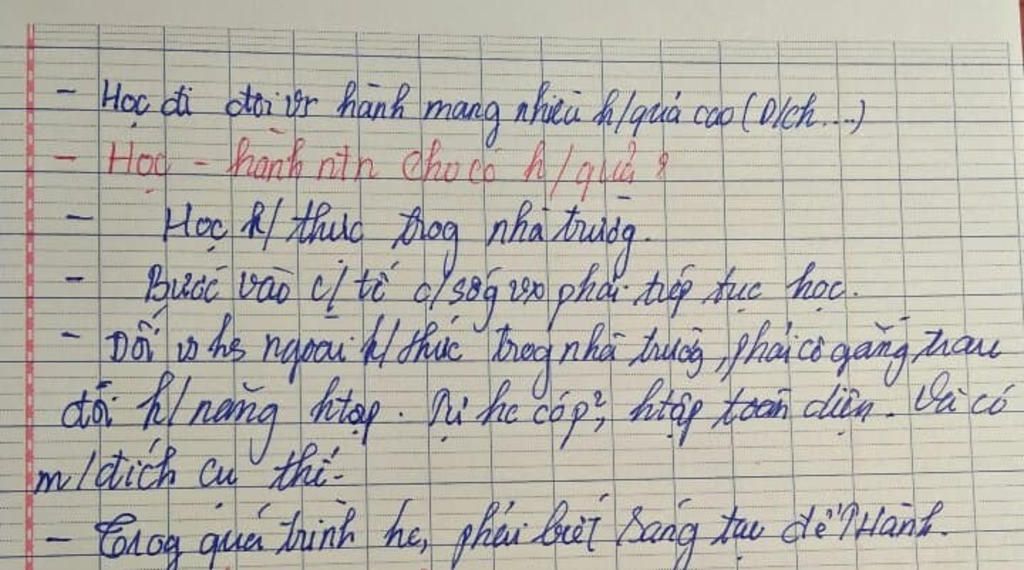 - Học đi đôi vs hành mang nhiều h/quả cao (D/ch...)
- Học - hành ntn cho có h/quả?
- Học k/thức trog nhà trườg.
- Bước vào c/ tế c/sốg vx phải tiếp tục học.
- Đối vs hs ngoài k/thức trog nhà trườg, phải cố gắng trau
dồi k/năng htập. Tự hc có p², htập toàn diện. Và có
m/đích cụ thể.
- Trog quá trình hc, phải biết sáng tạo để Hành.